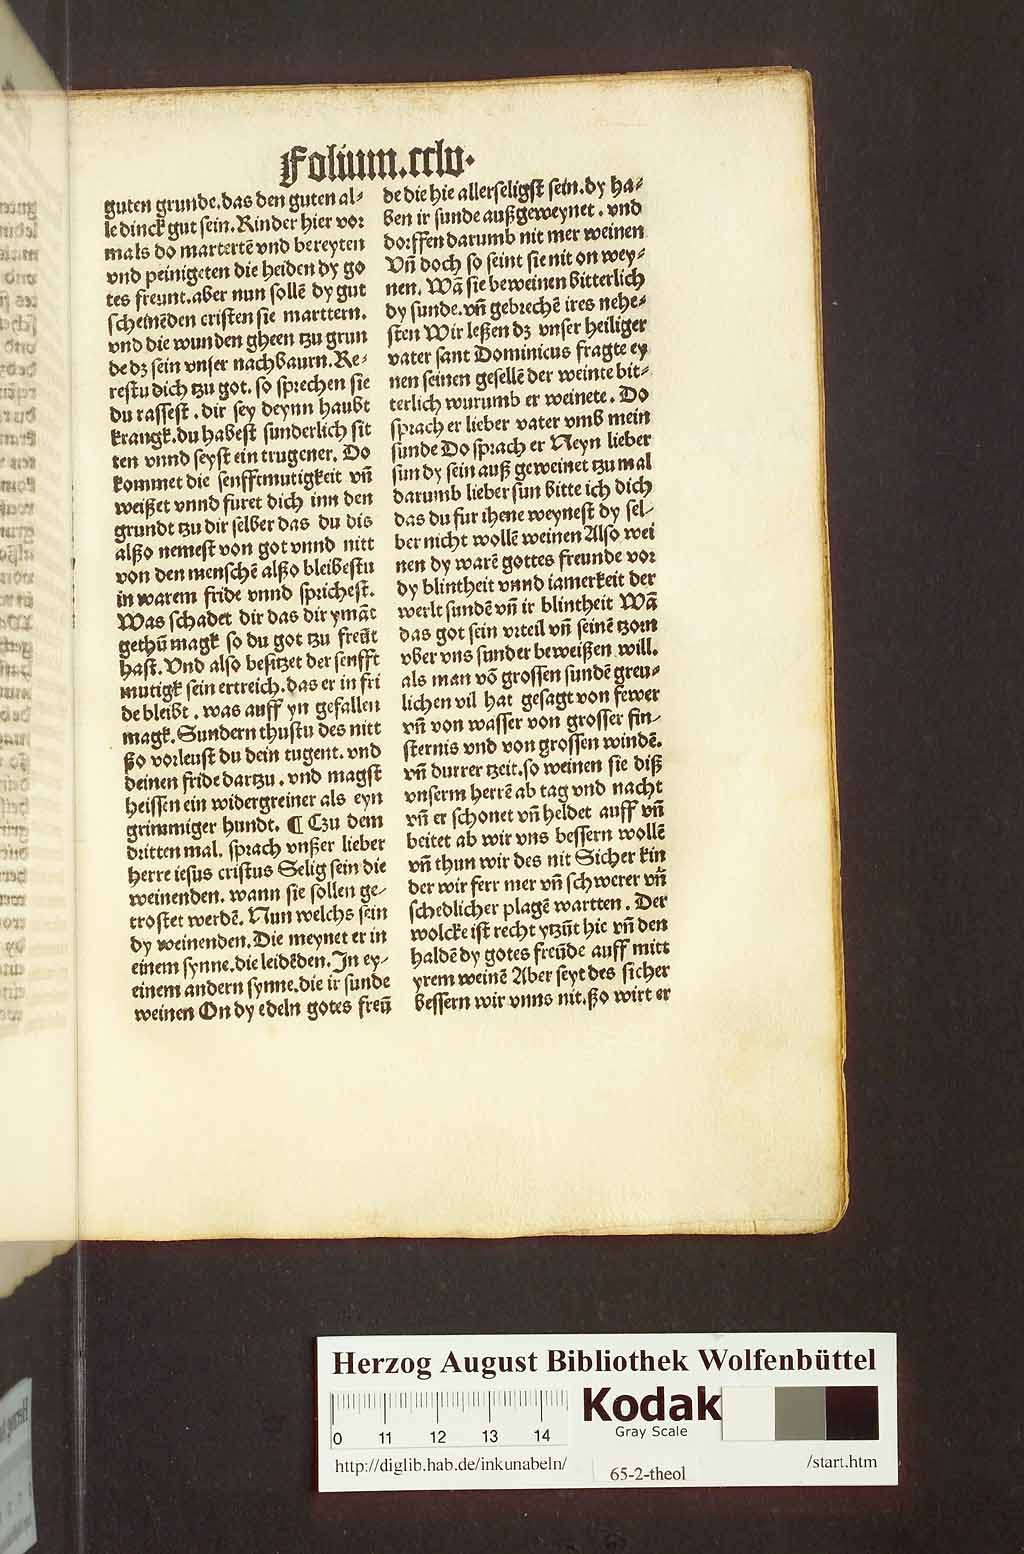 Folium.cclv.
guten grunde.das den guten al⸗
le dinck gut sein.Rinder hier vor
mals do martertē vnd bereyten
vnd peinigeten die heiden dy go
tes freunt.aber nun sollē dy gut
scheinēden cristen sie marttern.
vnd die wunden gheen tzu grun
de dz sein vnser nachbaurn.Re⸗
restu dich tzu got. so sprechen sie
du rassest. dir sey deynn haubt
krangk.du habest sunderlich sit
ten vnnd seyst ein trugener. Do
kommet die senfftmutigkeit vñ
weißet vnnd furet dich inn den
grundt tzu dir selber das du dis
alßo nemest von got vnnd nitt
von den menschē alßo bleibestu
in warem fride vnnd sprichest.
Was schadet dir das dir ymāt
gethū magk so du got tzu freūt
hast. Vnd also besitzet der senfft
mutigk sein ertreich.das er in fri
de bleibt. was auff yn gefallen
magk.Sundern thustu des nitt
ßo vorleust du dein tugent. vnd
deinen fride dartzu. vnd magst
heissen ein widergreiner als eyn
grimmiger hundt. ¶ Czu dem
dritten mal. sprach vnßer lieber
herre iesus cristus Selig sein die
weinenden. wann sie sollen ge⸗
trostet werdē. Nun welchs sein
dy weinenden.Die meynet er in
einem synne.die leidēden. In ey⸗
einem andern synne.die ir sunde
weinen On dy edeln gotes freū
de die hie allerseligst sein.dy ha⸗
ben ir sunde außgeweynet. vnd
dorffen darumb nit mer weinen
Vñ doch so seint sie nit on wey⸗
nen. Wā sie beweinen bitterlich
dy sunde.vñ gebrechē ires nehe⸗
sten Wir leßen dz vnser heiliger
vater sant Dominicus fragte ey
nen seinen gesellē der weinte bit⸗
terlich wurumb er weinete. Do
sprach er lieber vater vmb mein
sunde Do sprach er Neyn lieber
sun dy sein auß geweinet tzu mal
darumb lieber sun bitte ich dich
das du fur ihene weynest dy sel⸗
ber nicht wollē weinen Also wei
nen dy warē gottes freunde vor
dy blintheit vnnd iamerkeit der
werlt sundē vñ ir blintheit Wā
das got sein vrteil vñ seinē tzorn
vber vns sunder beweißen will.
als man vō grossen sundē greu⸗
lichen vil hat gesagt von fewer
vñ von wasser von grosser fin⸗
sternis vnd von grossen windē.
vñ durrer tzeit.so weinen sie diß
vnserm herrē ab tag vnd nacht
vñ er schonet vñ heldet auff vñ
beitet ab wir vns bessern wollē
vñ thun wir des nit Sicher kin
der wir ferr mer vñ schwerer vñ
schedlicher plagē wartten. Der
wolcke ist recht ytzūt hie vñ den
haldē dy gotes freūde auff mitt
yrem weinē Aber seyt des sicher
bessern wir vnns nit.ßo wirt er
Herzog August Bibliothek Wolfenbüttel
Kodak
Gray Scale
0 11 12 13 14
http://diglib.hab.de/inkunabeln/
65-2-theol
/start.htm